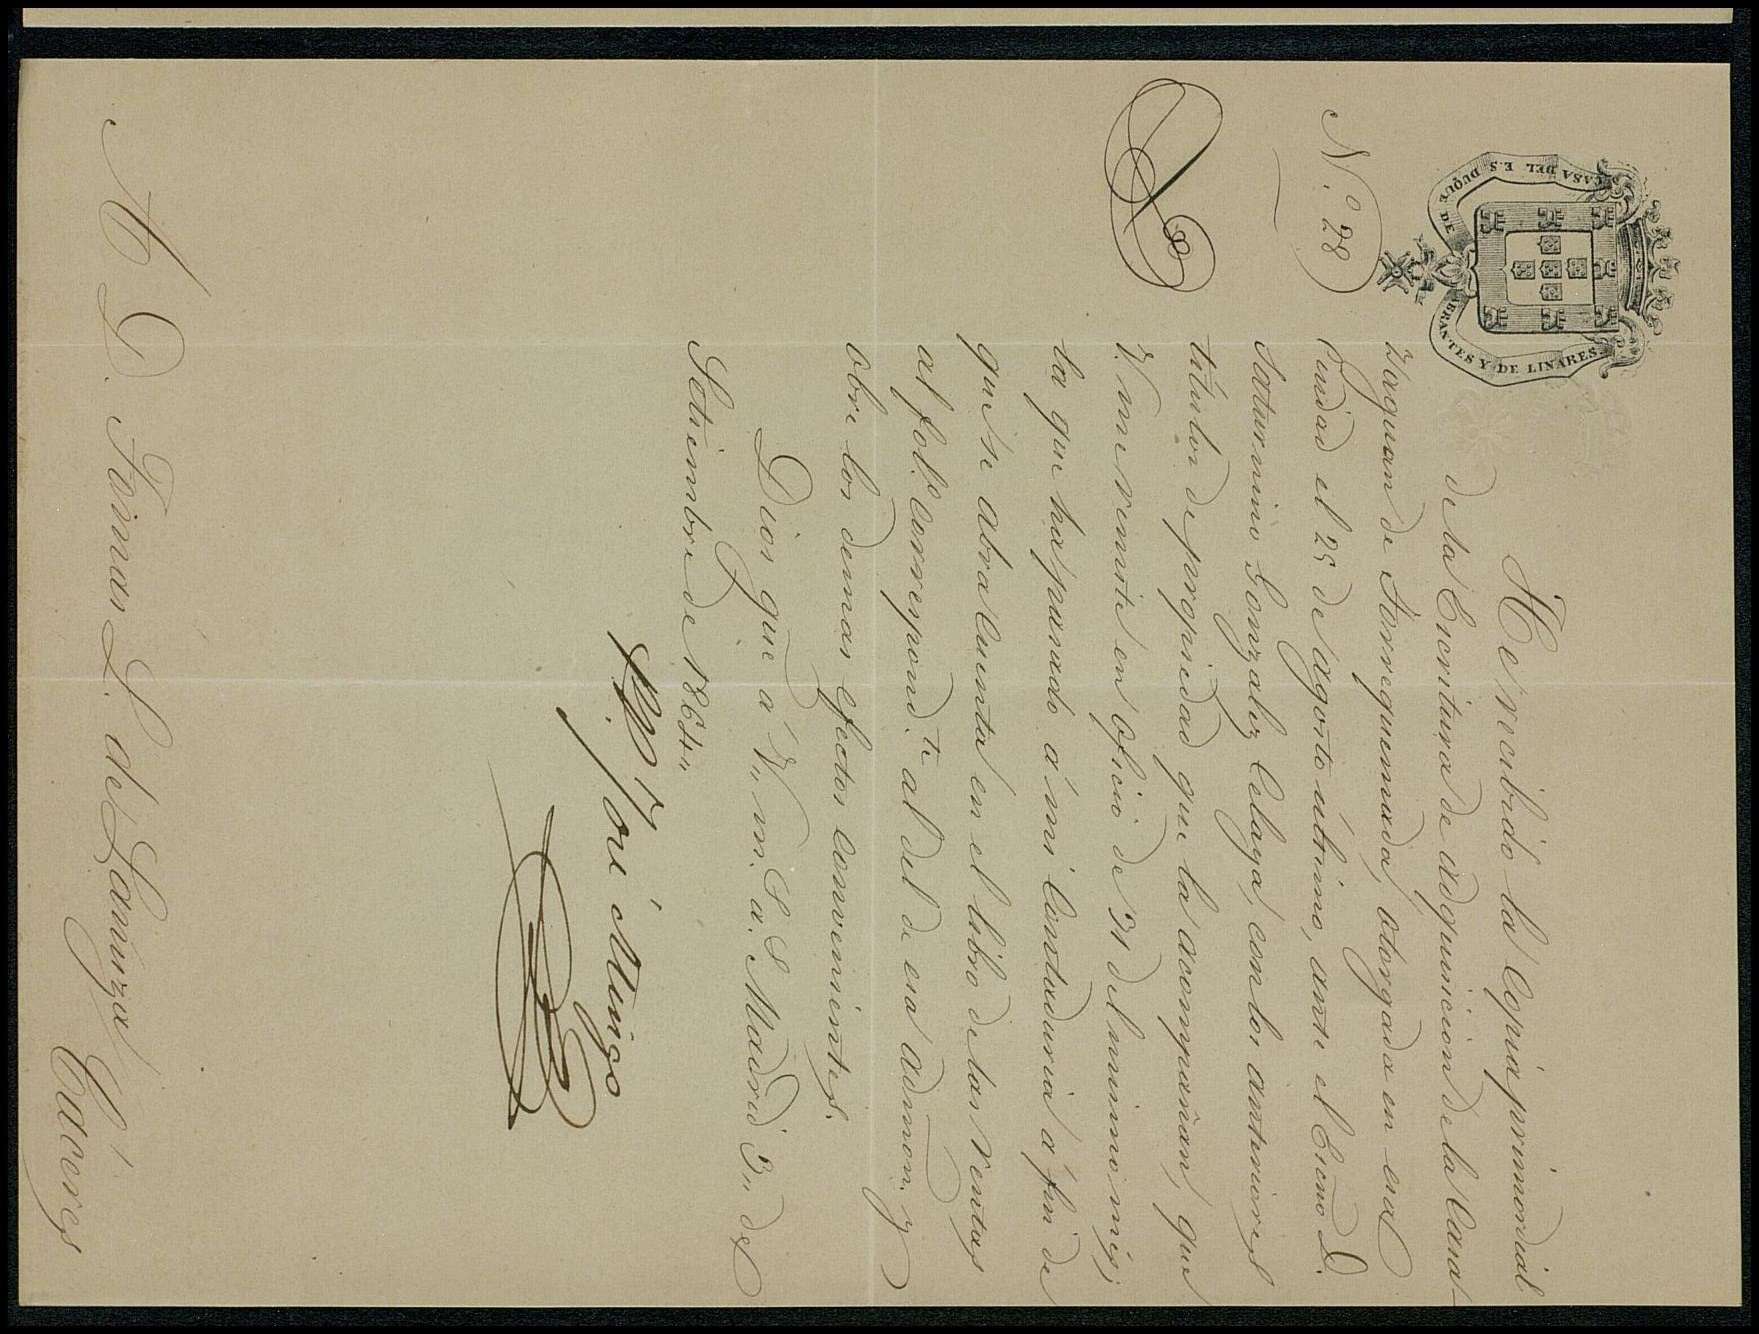 CASA DEL E.S. DUQUE DE ABRANTES Y DE LINARES.
N.º 28
He recibido la Copia primordial
de la Escritura de adquisicion de la Casa
Zaguan de Torrequemada, otorgada en esa
Ciudad el 25 de agosto último, ante el Escno D.
Saturnino Gonzalez Celaya, con los anteriores
titulos de propiedad que la acompañan, que
V. me remite en oficio de 31 del mismo mes;
la que ha pasado á mi Contaduria á fin de
que se abra Cuenta en el libro de las rentas
al fol.º correspond.te al del de esa Admon. y
obre los demas efectos convenientes.
Dios gue á V. m. a. Madrid 3 de
Setiembre de 1864
José Muñoz
A D. Tomas L. de Lanuza Cáceres